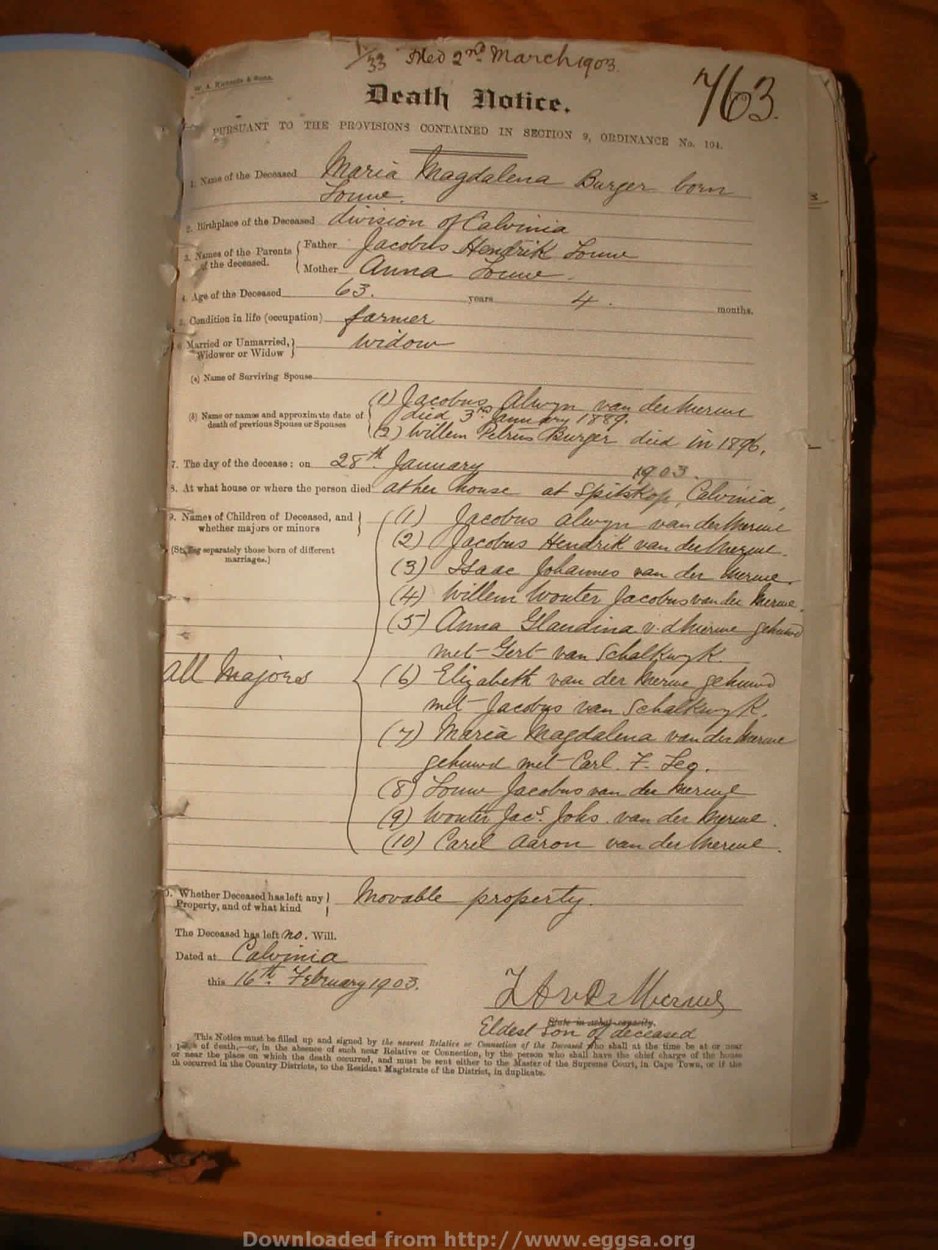 1/33 Filed 2nd March 1903.
763.
W. A. Richards & Sons.
Death Notice.
PURSUANT TO THE PROVISIONS CONTAINED IN SECTION 9, ORDINANCE No. 104.
1. Name of the Deceased Maria Magdalena Burger born
Louw.
2. Birthplace of the Deceased division of Calvinia
3. Names of the Parents of the deceased. Father Jacobus Hendrik Louw
Mother Anna Louw.
4. Age of the Deceased 63. years 4. months.
5. Condition in life (occupation) farmer
6. Married or Unmarried, Widower or Widow widow
(a) Name of Surviving Spouse
(b) Name or names and approximate date of death of previous Spouse or Spouses (1) Jacobus Alwyn van der Merwe
died 3rd January 1889.
(2) Willem Petrus Burger died in 1896.
7. The day of the decease: on 28th January 1903.
8. At what house or where the person died at her house at Spitskop, Calvinia,
9. Names of Children of Deceased, and whether majors or minors
(Stating separately those born of different marriages.)
All Majors
(1) Jacobus Alwyn van der Merwe
(2) Jacobus Hendrik van der Merwe.
(3) Isaac Johannes van der Merwe.
(4) Willem Wouter Jacobus van der Merwe.
(5) Anna Glaudina v. d Merwe gehuwd
met Gert van Schalkwyk.
(6) Elizabeth van der Merwe gehuwd
met Jacobus van Schalkwyk.
(7) Maria Magdalena van der Merwe
gehuwd met Carl. F.
(8) Louw Jacobus van der Merwe
(9) Wouter Jacs. Johs. van der Merwe.
(10) Carel Aaron van der Merwe.
10. Whether Deceased has left any Property, and of what kind Movable property.
The Deceased has left no. Will.
Dated at Calvinia
this 16th February 1903.
v D Merwe
State in what capacity.
Eldest Son of deceased
This Notice must be filled up and signed by the nearest Relative or Connection of the Deceased who shall at the time be at or near
place of death,—or, in the absence of such near Relative or Connection, by the person who shall have the chief charge of the house
or near the place on which the death occurred, and must be sent either to the Master of the Supreme Court, in Cape Town, or if the
th occurred in the Country Districts, to the Resident Magistrate of the District, in duplicate.
Downloaded from http://www.eggsa.org